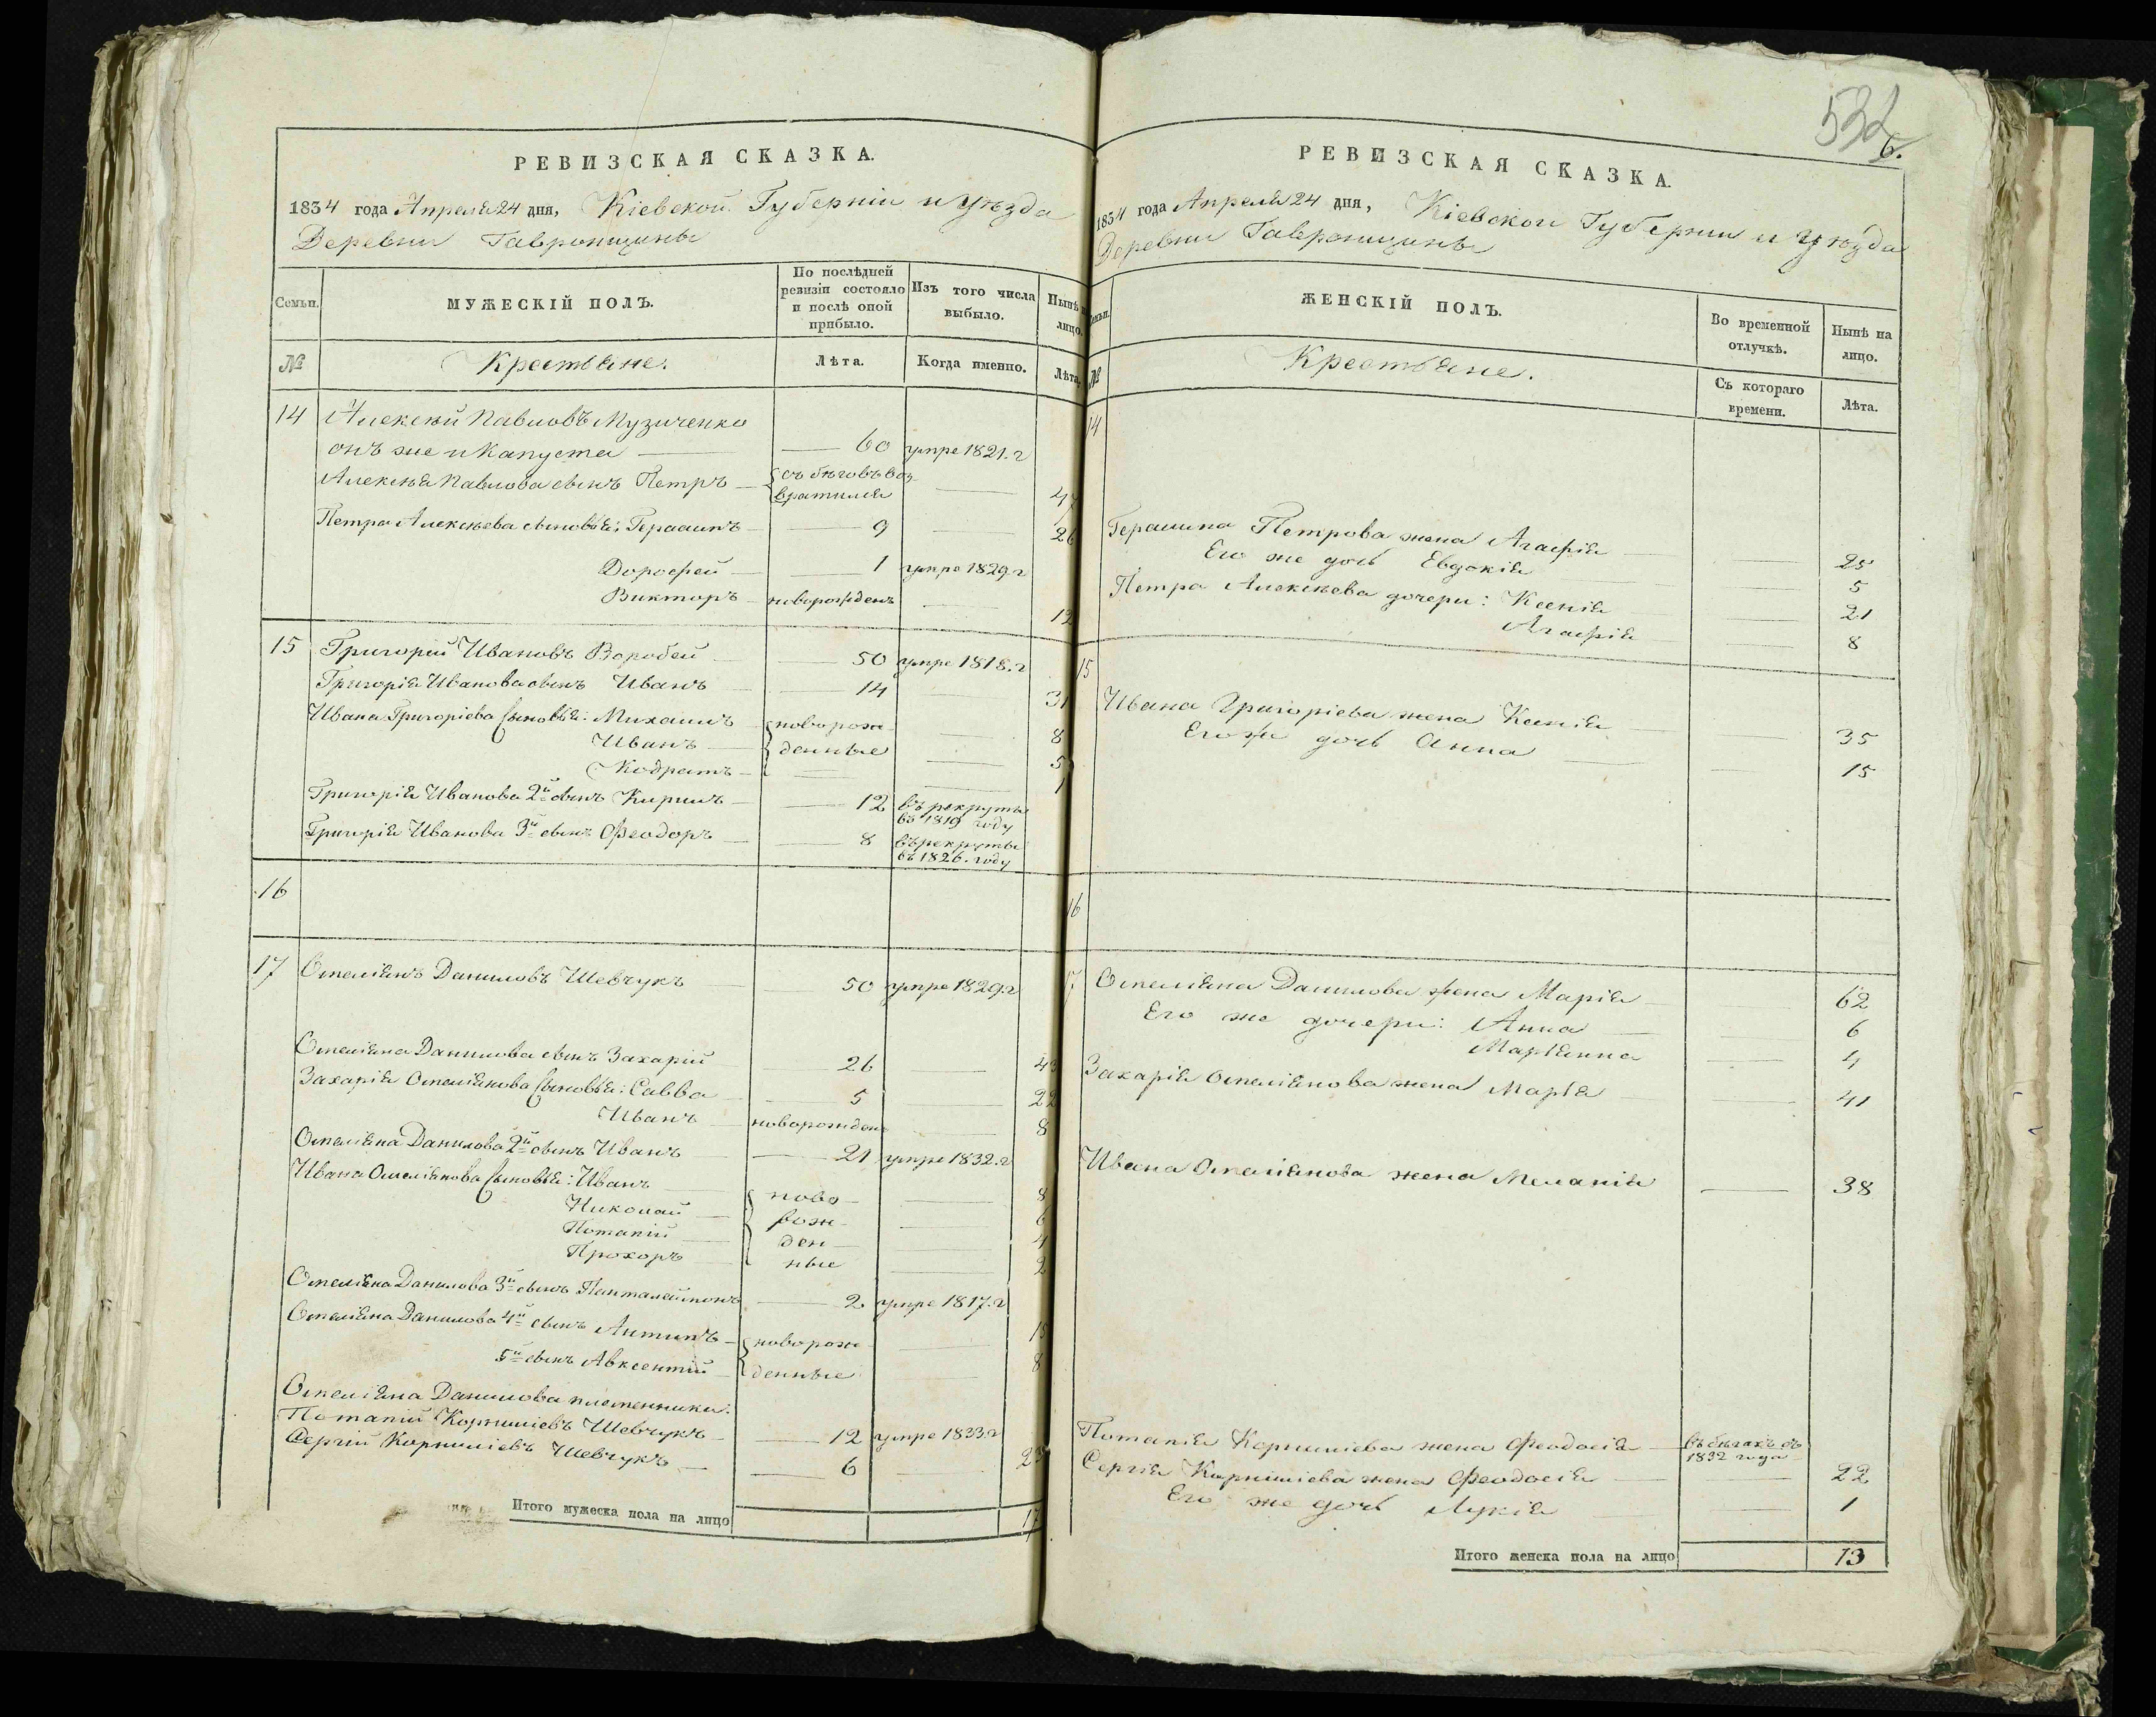 РЕВИЗСКАЯ СКАЗКА.
1834 года Апреля 24 дня, Кіевской Губерніи и Уѣзда
Деревни Гавронщины
Семьи.
МУЖЕСКІЙ ПОЛЪ.
По послѣдней ревизіи состояло и послѣ оной прибыло.
Изъ того числа выбыло.
Нынѣ на лицо.
№
Крестьяне.
Лѣта.
Когда именно.
Лѣта.
14 Алексѣй Павловъ Музиченко
онъ же и Капуста — 60 умре 1821. г
Алексѣя Павлова сынъ Петръ — съ бѣговъ воз-
вратился — 47
Петра Алексѣева сыновья: Герасимъ — 9 — 26
Дорофей — 1 умре 1829. г
Викторъ — новорожденъ — 12
15 Григорій Ивановъ Воробей — 50 умре 1818. г
Григорія Иванова сынъ Иванъ — 14 — 31
Ивана Григоріева сыновья: Михаилъ — новорож- — 8
Иванъ — денные — 5
Кодратъ — — — 1
Григорія Иванова 2й сынъ Кирилъ — 12 въ рекруты
въ 1819 году
Григорія Иванова 3й сынъ Феодоръ — 8 въ рекруты
въ 1826. году
16
17 Омеліянъ Даниловъ Шевчукъ 50 умре 1829. г
Омеліяна Данилова сынъ Захарій — 26 — 43
Захарія Омеліянова сыновья: Савва — 5 — 22
Иванъ — новорожден — 8
Омеліяна Данилова 2й сынъ Иванъ — 21 умре 1832. г
Ивана Омеліянова сыновья: Иванъ — ново- — 8
Николай — рож- — 6
Потапій — ден- — 4
Прохоръ — ные — 2
Омеліяна Данилова 3й сынъ Панталеймонъ — 2 умре 1817. г
Омеліяна Данилова 4й сынъ Антипъ — новорож- — 15
5й сынъ Авксентій — денные — 8
Омеліяна Данилова племенники:
Потапій Корниліевъ Шевчукъ — 12 умре 1833. г
Сергій Корниліевъ Шевчукъ — 6 — 23
Итого мужеска пола на лицо 17
532
6.
РЕВИЗСКАЯ СКАЗКА.
1834 года Апреля 24 дня, Кіевской Губерніи и Уѣзда
Деревни Гавронщины
Семьи.
ЖЕНСКІЙ ПОЛЪ.
Во временной отлучкѣ.
Нынѣ на лицо.
№
Крестьяне.
Съ котораго времени.
Лѣта.
14
Герасима Петрова жена Агафія — 25
Его же дочь Евдокія — 5
Петра Алексѣева дочери: Ксенія — 21
Агафія — 8
15
Ивана Григоріева жена Ксенія — 35
Его же дочь Анна — 15
16
17 Омеліяна Данилова жена Марія — 62
Его же дочери: Анна — 6
Маріянна — 4
Захарія Омеліянова жена Марія — 41
Ивана Омеліянова жена Меланія — 38
Потапія Корниліева жена Феодосія — въ бѣгахъ съ
1832 года
Сергія Корниліева жена Феодосія — 22
Его же дочь Лукія — 1
Итого женска пола на лицо 13